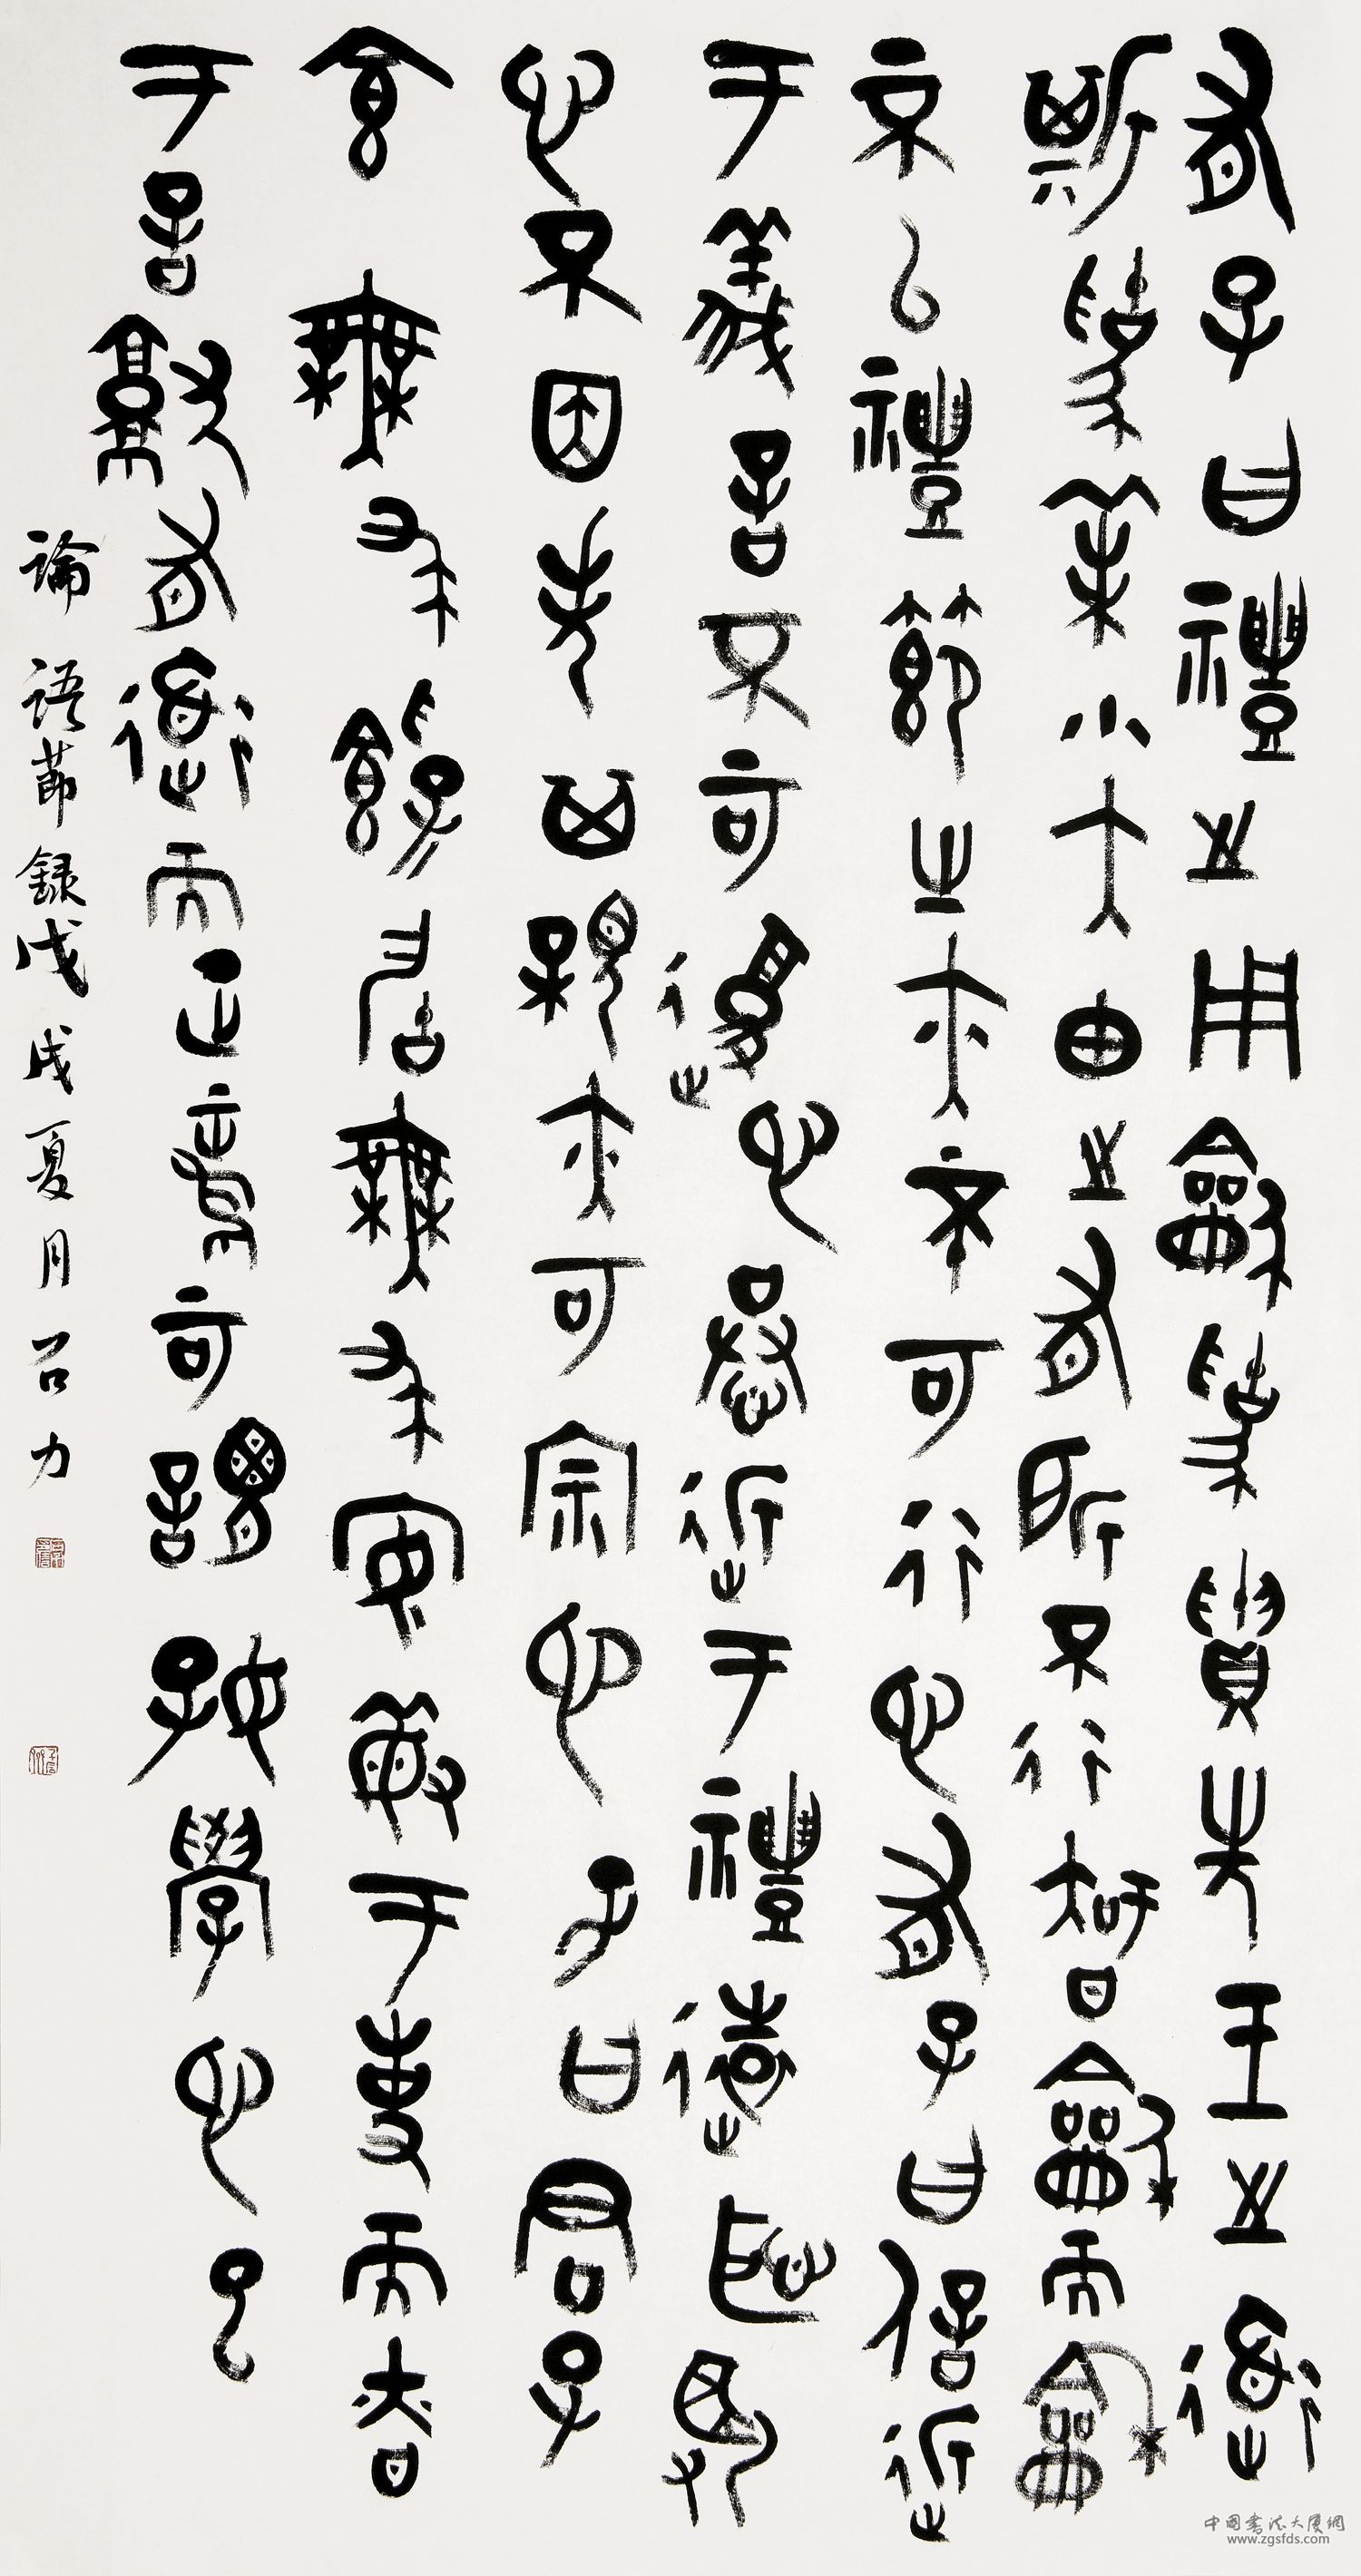 有子曰禮之用龢為貴先王之道
斯為美小大由之有所不行智龢而龢
不以禮節之亦不可行也有子曰信近
于義言不可復也恭近于禮遠恥辱
也不因失其親亦可宗也子曰君子
食無求飽居無求安敏于事而慎
于言就有道而正焉可謂好學也已
論語節録戊戌夏月召力
中国书法大厦網
www.zgsfds.com